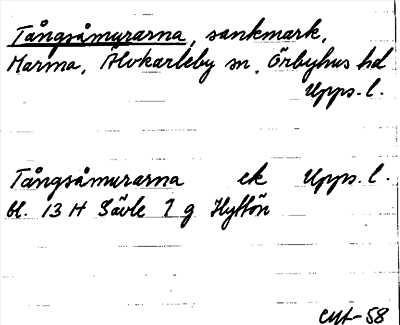 Tångsåmurarna, sankmark,
Marma, Älvkarleby sn, Örbyhus hd
Upps. l.
Tångsåmurarna ek Upps. l.
bl. 13 H Gävle 7 g Hyttön
-58